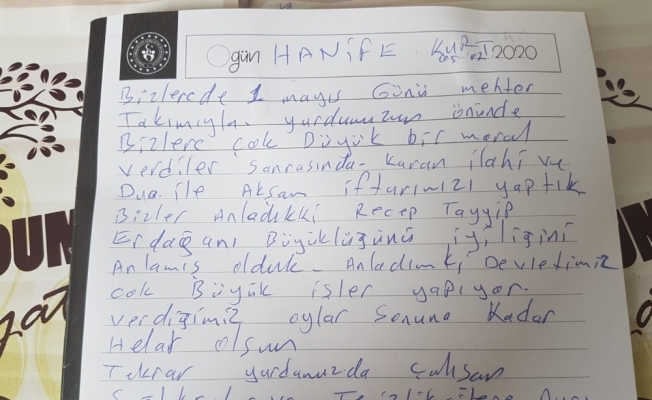 gün HANİFE KURT 2020
Bizlerede 1 mayıs Günü mehter
Takımıyla yurdumuzun önünde
Bizlere çok Büyük bir moral
verdiler sonrasında. Kuran ilahi ve
Dua ile Akşam iftarımızı yaptık
Bizler Anladıkki Recep Tayyip
Erdağanı Büyüklüğünü iyiliğini
Anlamış olduk. Anladımki Devletimiz
çok Büyük işler yapıyor.
verdiğimiz oylar Sonuna Kadar
Helal olsun
Tekrar yurdumuzda çalışan